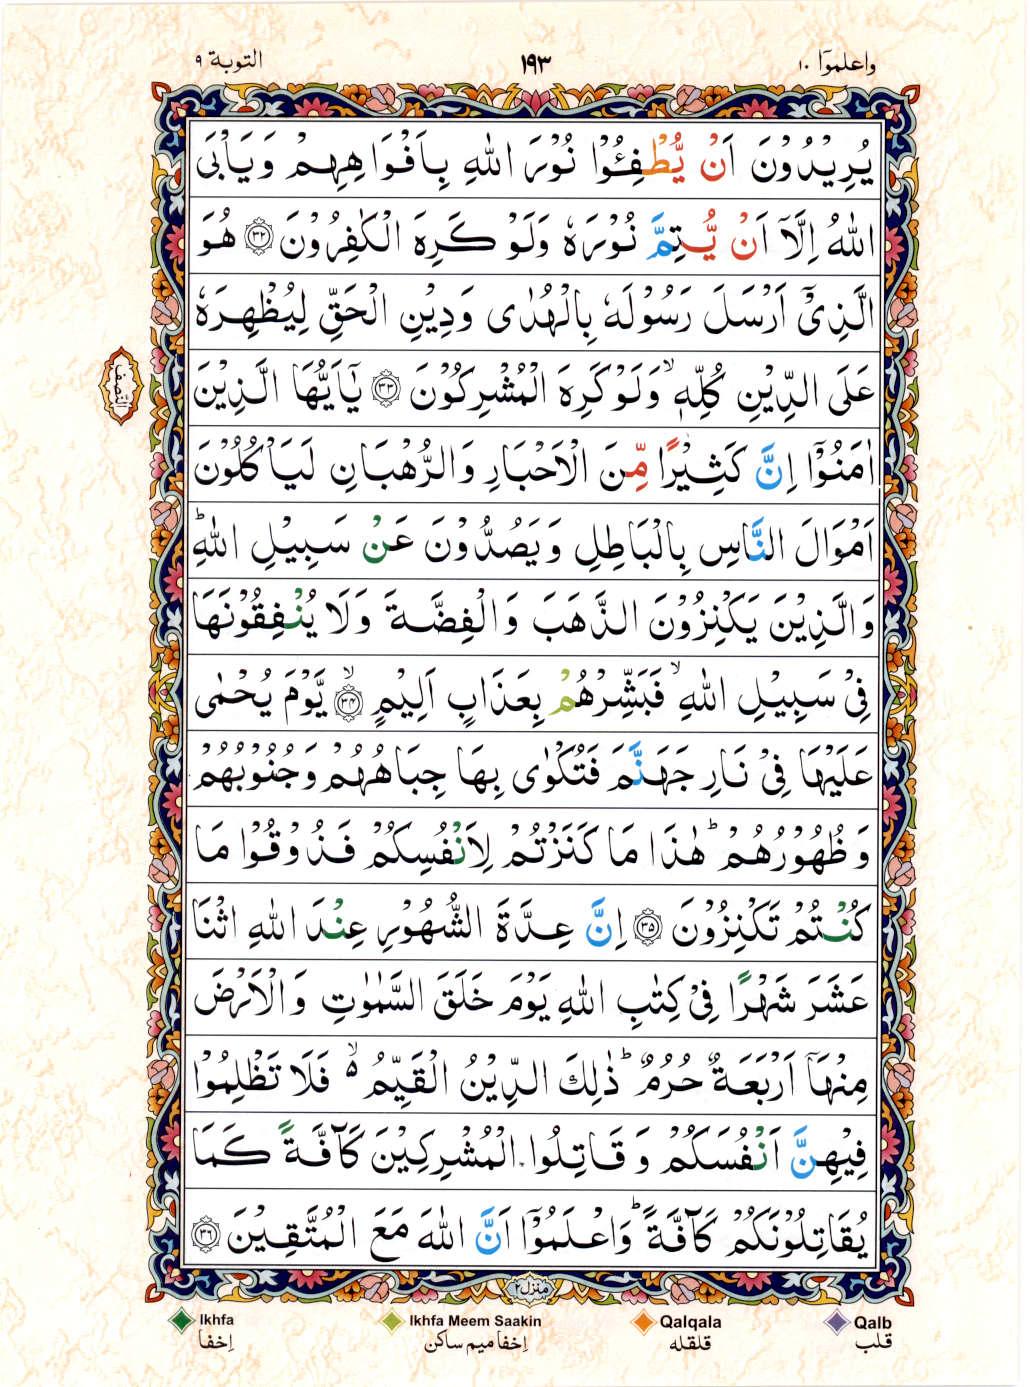 واعلموٓا ۱۰
۱۹۳
التوبة ۹
يُرِيْدُوْنَ اَنْ يُّطْفِـُٔوْا نُوْرَ اللّٰهِ بِاَفْوَاهِهِمْ وَيَاْبَى
اللّٰهُ اِلَّاۤ اَنْ يُّتِمَّ نُوْرَهٗ وَلَوْ كَرِهَ الْكٰفِرُوْنَ ﴿۳۲﴾ هُوَ
الَّذِيْۤ اَرْسَلَ رَسُوْلَهٗ بِالْهُدٰى وَدِيْنِ الْحَقِّ لِيُظْهِرَهٗ
عَلَى الدِّيْنِ كُلِّهٖۙ وَلَوْ كَرِهَ الْمُشْرِكُوْنَ ﴿۳۳﴾ يٰۤاَيُّهَا الَّذِيْنَ
النّصف
اٰمَنُوْۤا اِنَّ كَثِيْرًا مِّنَ الْاَحْبَارِ وَالرُّهْبَانِ لَيَاْكُلُوْنَ
اَمْوَالَ النَّاسِ بِالْبَاطِلِ وَيَصُدُّوْنَ عَنْ سَبِيْلِ اللّٰهِؕ
وَالَّذِيْنَ يَكْنِزُوْنَ الذَّهَبَ وَالْفِضَّةَ وَلَا يُنْفِقُوْنَهَا
فِيْ سَبِيْلِ اللّٰهِۙ فَبَشِّرْهُمْ بِعَذَابٍ اَلِيْمٍۙ ﴿۳۴﴾ يَّوْمَ يُحْمٰى
عَلَيْهَا فِيْ نَارِ جَهَنَّمَ فَتُكْوٰى بِهَا جِبَاهُهُمْ وَجُنُوْبُهُمْ
وَظُهُوْرُهُمْؕ هٰذَا مَا كَنَزْتُمْ لِاَنْفُسِكُمْ فَذُوْقُوْا مَا
كُنْتُمْ تَكْنِزُوْنَ ﴿۳۵﴾ اِنَّ عِدَّةَ الشُّهُوْرِ عِنْدَ اللّٰهِ اثْنَا
عَشَرَ شَهْرًا فِيْ كِتٰبِ اللّٰهِ يَوْمَ خَلَقَ السَّمٰوٰتِ وَالْاَرْضَ
مِنْهَاۤ اَرْبَعَةٌ حُرُمٌؕ ذٰلِكَ الدِّيْنُ الْقَيِّمُ ۙ۬ فَلَا تَظْلِمُوْا
فِيْهِنَّ اَنْفُسَكُمْ وَقَاتِلُوا الْمُشْرِكِيْنَ كَآفَّةً كَمَا
يُقَاتِلُوْنَكُمْ كَآفَّةًؕ وَاعْلَمُوْۤا اَنَّ اللّٰهَ مَعَ الْمُتَّقِيْنَ ﴿۳۶﴾
منزل ۲
Ikhfa Ikhfa Meem Saakin Qalqala Qalb
إخفا إخفا ميم ساكن قلقله قلب